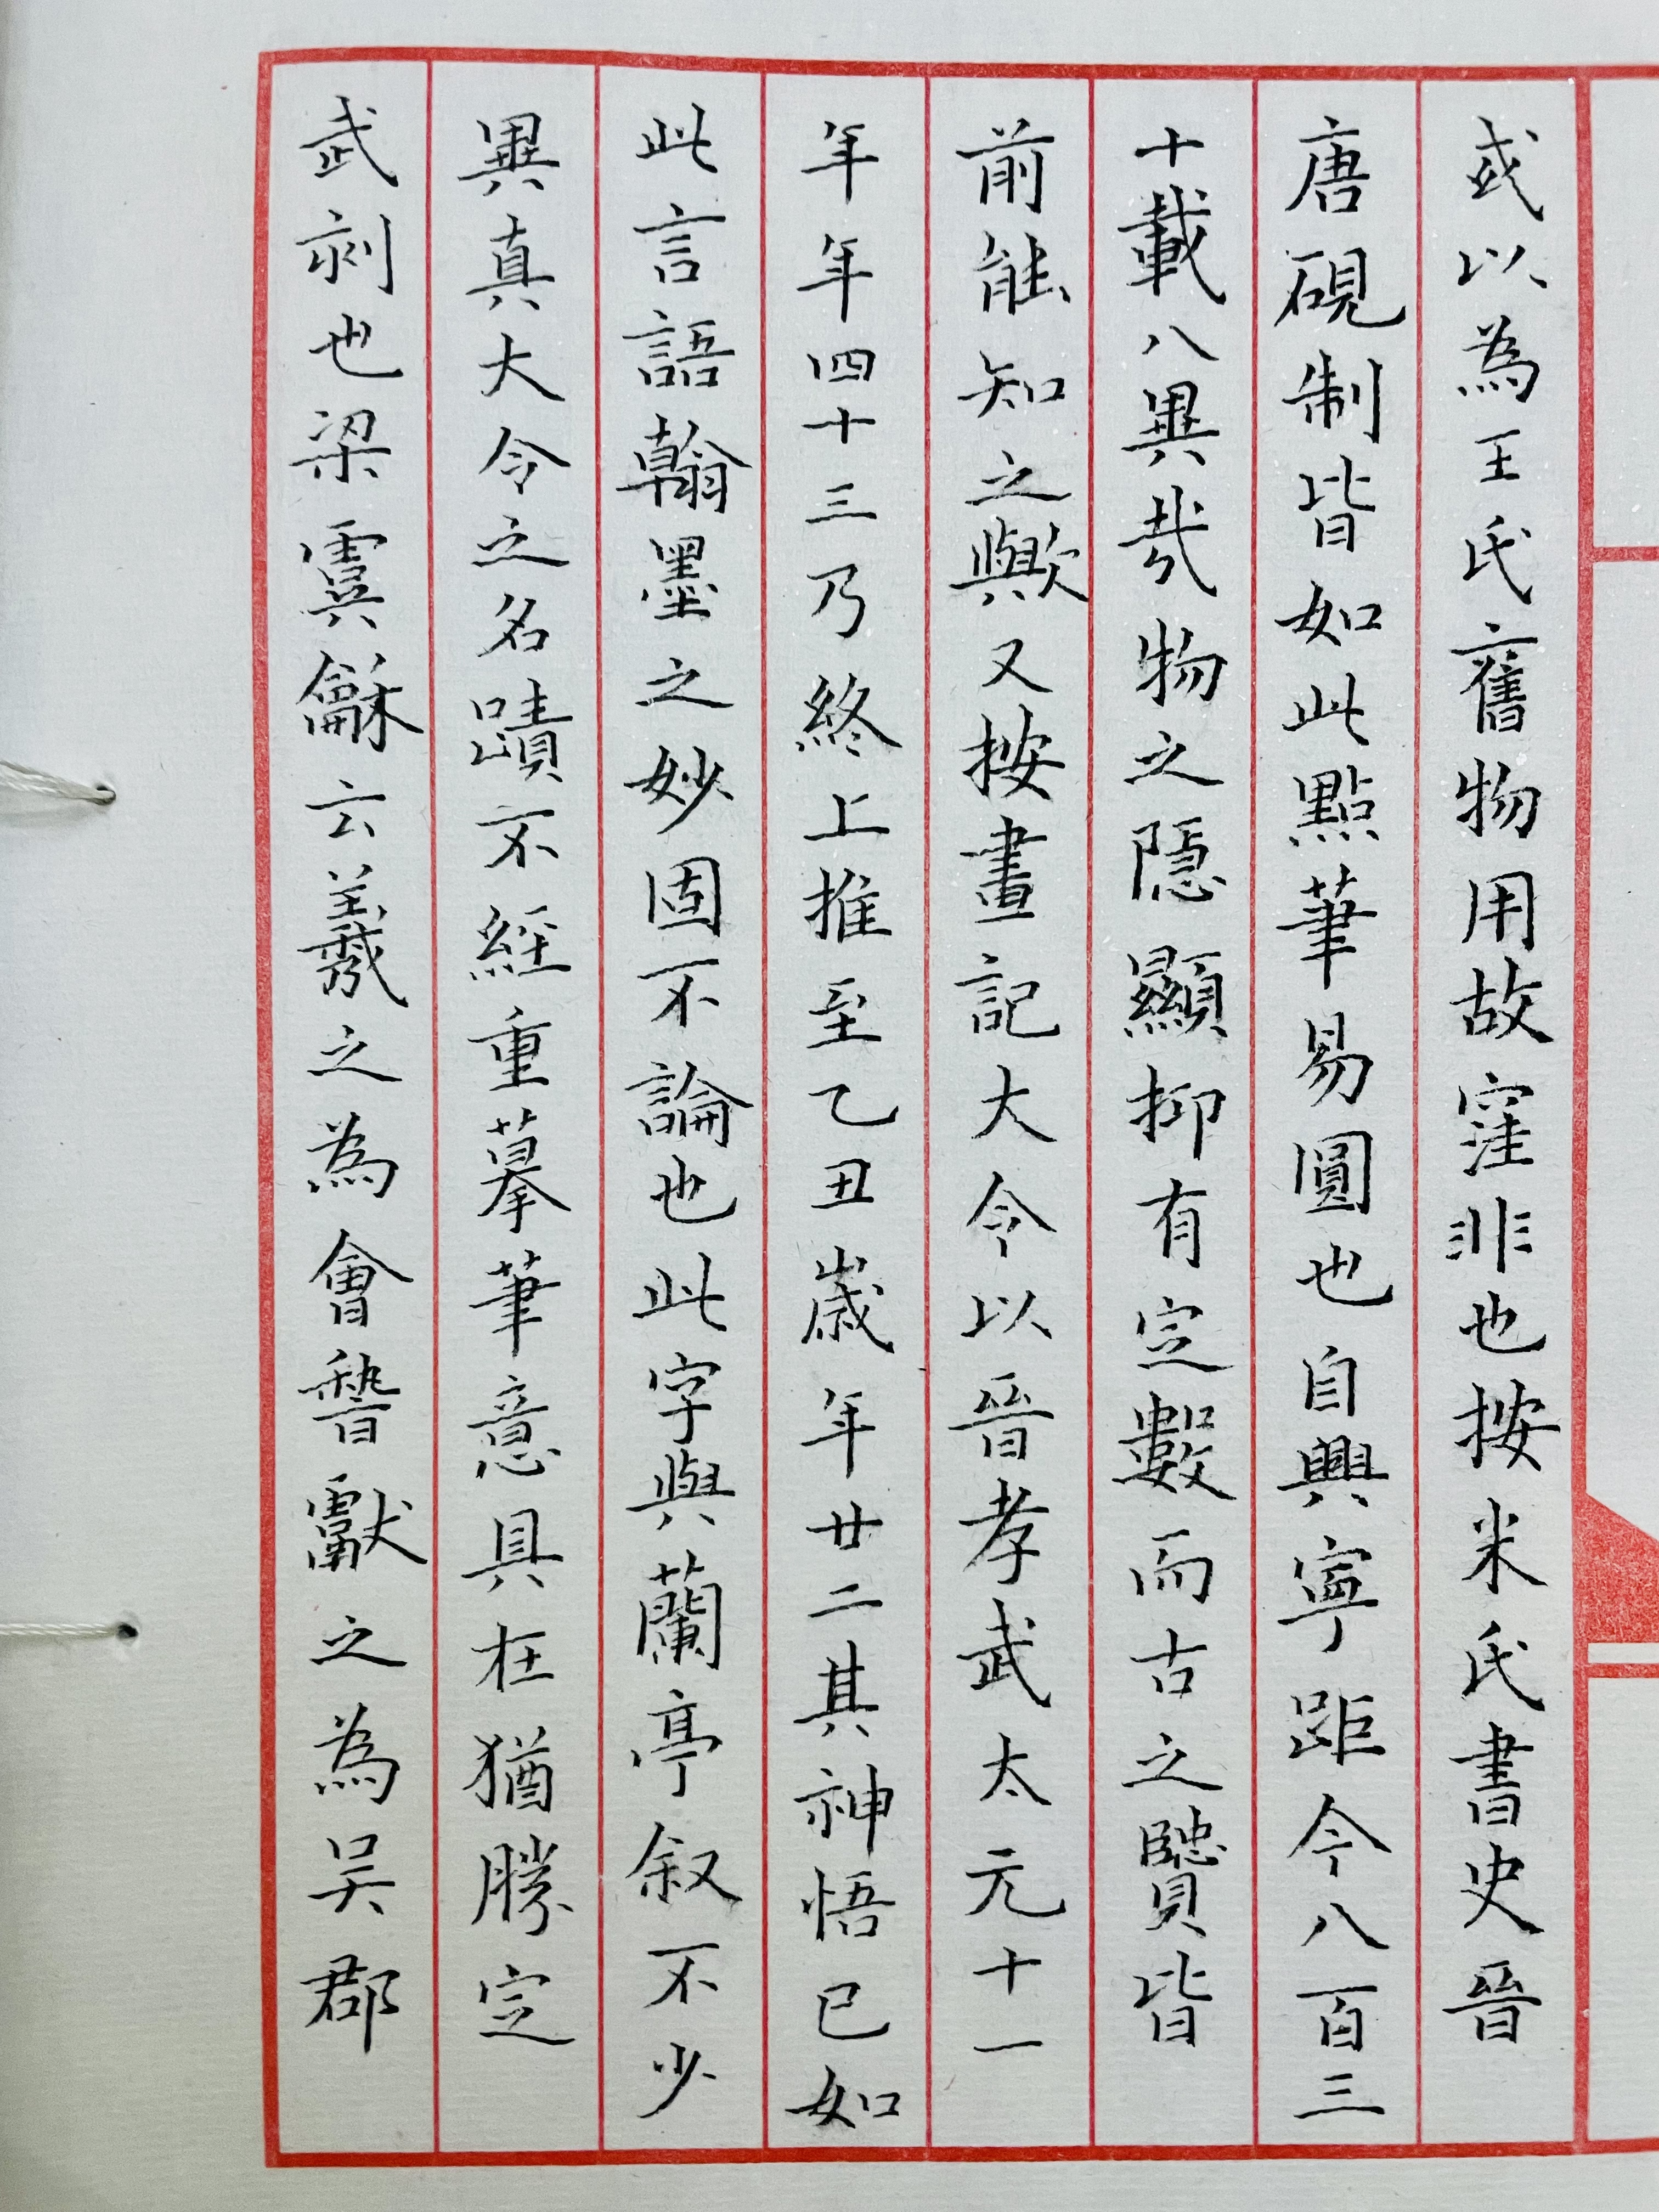 或以為王氏舊物用故窪非也按米氏書史晉
唐硯制皆如此點筆易圓也自興寧距今八百三
十載八異哉物之隱顯抑有定數而古之賢皆
前能知之歟又按畫記大令以晉孝武太元十一
年年四十三乃終上推至乙丑歲年廿二其神悟已如
此言語翰墨之妙固不論也此字與蘭亭叙不少
異真大令之名蹟不經重摹筆意具在猶勝定
武刻也梁虞龢云羲之為會稽獻之為吴郡